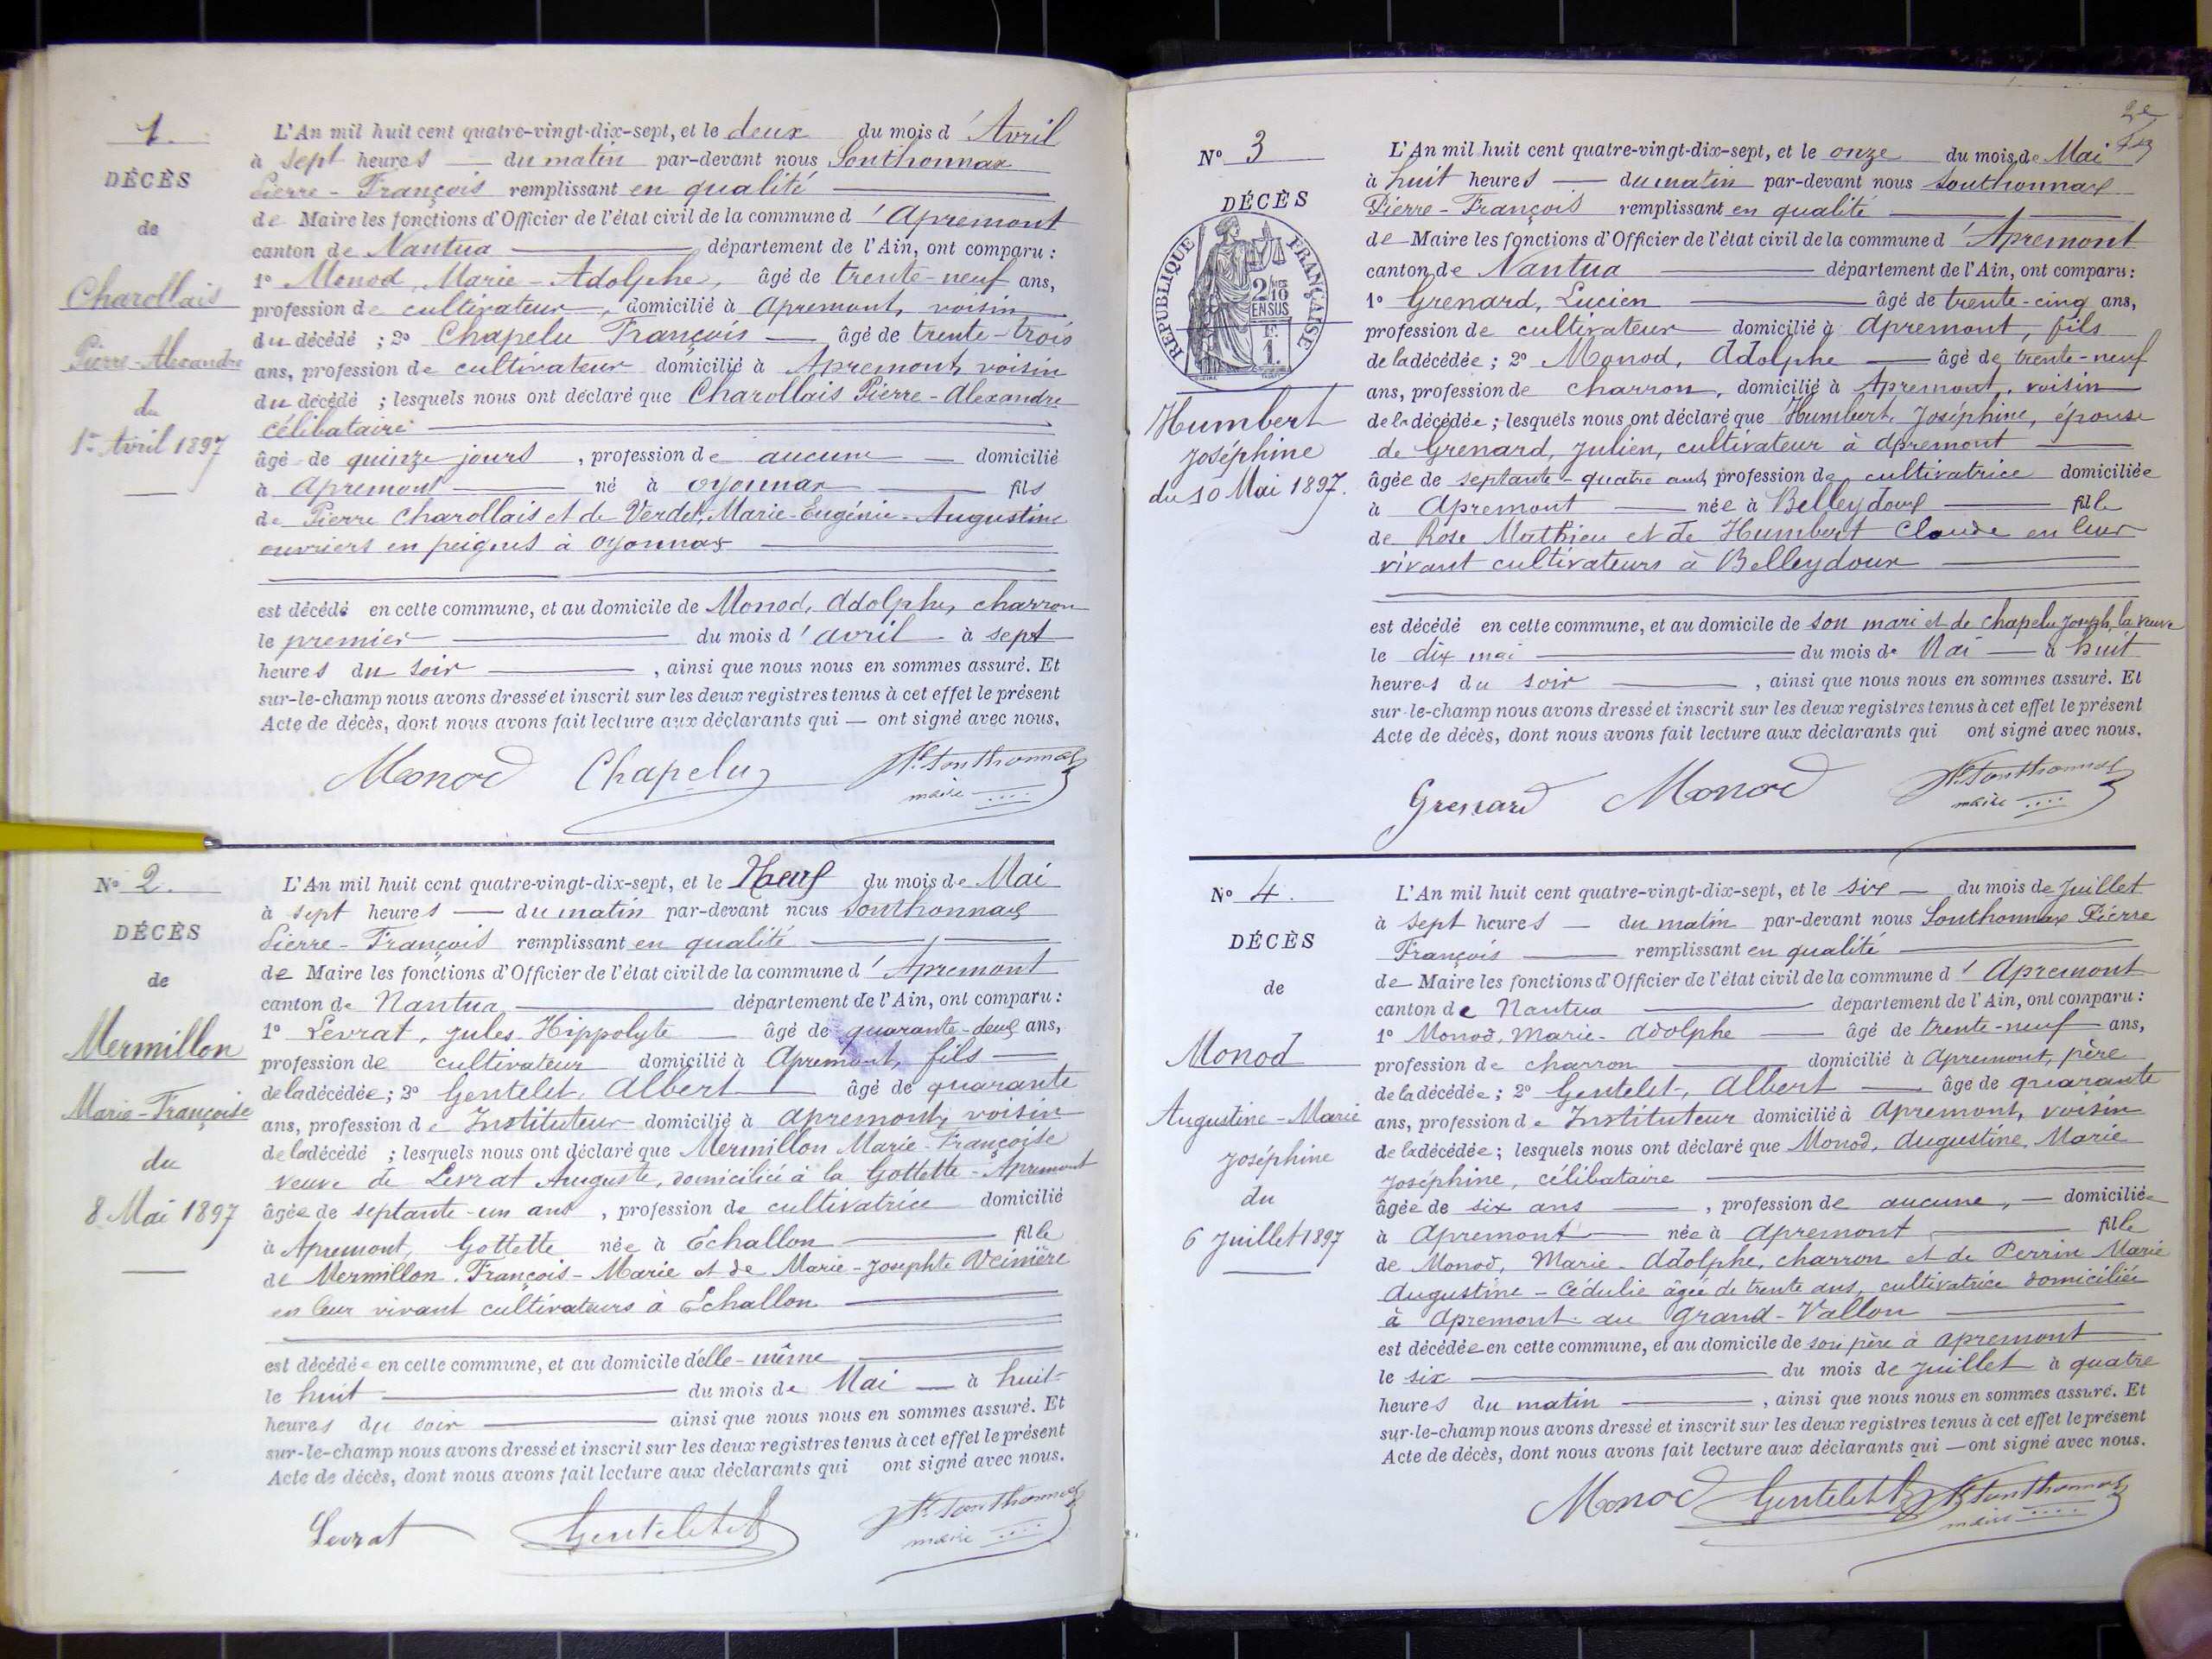 1.
DÉCÈS
de
Charollais
Pierre-Alexandre
du
1er Avril 1897
L'An mil huit cent quatre-vingt-dix-sept, et le deux du mois d'Avril
à sept heures — du matin par-devant nous Southonnax
Pierre-François remplissant en qualité
de Maire les fonctions d'Officier de l'état civil de la commune d'Apremont
canton de Nantua département de l'Ain, ont comparu :
1º Monod, Marie-Adolphe, âgé de trente-neuf ans,
profession de cultivateur, domicilié à Apremont, voisin
du décédé ; 2º Chapelu François — âgé de trente-trois
ans, profession de cultivateur domicilié à Apremont, voisin
du décédé ; lesquels nous ont déclaré que Charollais Pierre-Alexandre
célibataire
âgé de quinze jours, profession de aucune — domicilié
à Apremont né à Oyonnax fils
de Pierre Charollais et de Verdet, Marie-Eugénie-Augustine
ouvriers en peignes à Oyonnax
est décédé en cette commune, et au domicile de Monod, Adolphe, charron
le premier du mois d'avril à sept
heures du soir, ainsi que nous nous en sommes assuré. Et
sur-le-champ nous avons dressé et inscrit sur les deux registres tenus à cet effet le présent
Acte de décès, dont nous avons fait lecture aux déclarants qui — ont signé avec nous.
Monod Chapelu Southonnax
maire
Nº 2.
DÉCÈS
de
Mermillon
Marie-Françoise
du
8 Mai 1897
L'An mil huit cent quatre-vingt-dix-sept, et le Neuf du mois de Mai
à sept heures — du matin par-devant nous Southonnax
Pierre-François remplissant en qualité
de Maire les fonctions d'Officier de l'état civil de la commune d'Apremont
canton de Nantua département de l'Ain, ont comparu :
1º Levrat, Jules Hippolyte — âgé de quarante-deux ans,
profession de cultivateur domicilié à Apremont, fils
de la décédée ; 2º Gentelet, Albert âgé de quarante
ans, profession de Instituteur domicilié à Apremont, voisin
de la décédé ; lesquels nous ont déclaré que Mermillon Marie-Françoise
veuve de Levrat Auguste, domiciliée à la Gottette-Apremont
âgée de septante-un ans, profession de cultivatrice domicilié
à Apremont, Gottette née à Echallon fille
de Mermillon François-Marie et de Marie-Josephte
en leur vivant cultivateurs à Echallon
est décédée en cette commune, et au domicile d'elle-même
le huit du mois de Mai — à huit
heures du soir ainsi que nous nous en sommes assuré. Et
sur-le-champ nous avons dressé et inscrit sur les deux registres tenus à cet effet le présent
Acte de décès, dont nous avons fait lecture aux déclarants qui ont signé avec nous.
Levrat Gentelet Southonnax
maire
2e
Nº 3
DÉCÈS
RÉPUBLIQUE FRANÇAISE
2/10
EN SUS
F.
1.
Humbert
Joséphine
du 10 Mai 1897.
L'An mil huit cent quatre-vingt-dix-sept, et le onze du mois de Mai
à huit heures — du matin par-devant nous Southonnax
Pierre-François remplissant en qualité
de Maire les fonctions d'Officier de l'état civil de la commune d'Apremont
canton de Nantua département de l'Ain, ont comparu :
1º Grenard, Lucien âgé de trente-cinq ans,
profession de cultivateur domicilié à Apremont, fils
de la décédée ; 2º Monod, Adolphe — âgé de trente-neuf
ans, profession de charron, domicilié à Apremont, voisin
de la décédée ; lesquels nous ont déclaré que Humbert, Joséphine, épouse
de Grenard, Julien, cultivateur à Apremont
âgée de septante-quatre ans, profession de cultivatrice domiciliée
à Apremont née à Belleydoux fille
de Rose Mathieu et de Humbert Claude en leur
vivant cultivateurs à Belleydoux
est décédé en cette commune, et au domicile de son mari et de Chapelu Joseph, la veuve
le dix mai du mois de Mai — à huit
heures du soir, ainsi que nous nous en sommes assuré. Et
sur-le-champ nous avons dressé et inscrit sur les deux registres tenus à cet effet le présent
Acte de décès, dont nous avons fait lecture aux déclarants qui ont signé avec nous.
Grenard Monod Southonnax
maire
Nº 4.
DÉCÈS
de
Monod
Augustine-Marie
Joséphine
du
6 Juillet 1897
L'An mil huit cent quatre-vingt-dix-sept, et le six — du mois de Juillet
à sept heures — du matin par-devant nous Southonnax Pierre
François remplissant en qualité
de Maire les fonctions d'Officier de l'état civil de la commune d'Apremont
canton de Nantua département de l'Ain, ont comparu :
1º Monod, Marie-Adolphe âgé de trente-neuf ans,
profession de charron domicilié à Apremont, père
de la décédée ; 2º Gentelet, Albert — âgé de quarante
ans, profession de Instituteur domicilié à Apremont, voisin
de la décédée ; lesquels nous ont déclaré que Monod, Augustine, Marie
Joséphine, célibataire
âgée de six ans, profession de aucune, — domiciliée
à Apremont née à Apremont fille
de Monod, Marie-Adolphe, charron et de Perrin Marie
Augustine-Cédulie âgée de trente ans, cultivatrice domiciliée
à Apremont au Grand-Vallon
est décédée en cette commune, et au domicile de son père à Apremont
le six du mois de Juillet à quatre
heures du matin, ainsi que nous nous en sommes assuré. Et
sur-le-champ nous avons dressé et inscrit sur les deux registres tenus à cet effet le présent
Acte de décès, dont nous avons fait lecture aux déclarants qui — ont signé avec nous.
Monod Gentelet Southonnax
maire